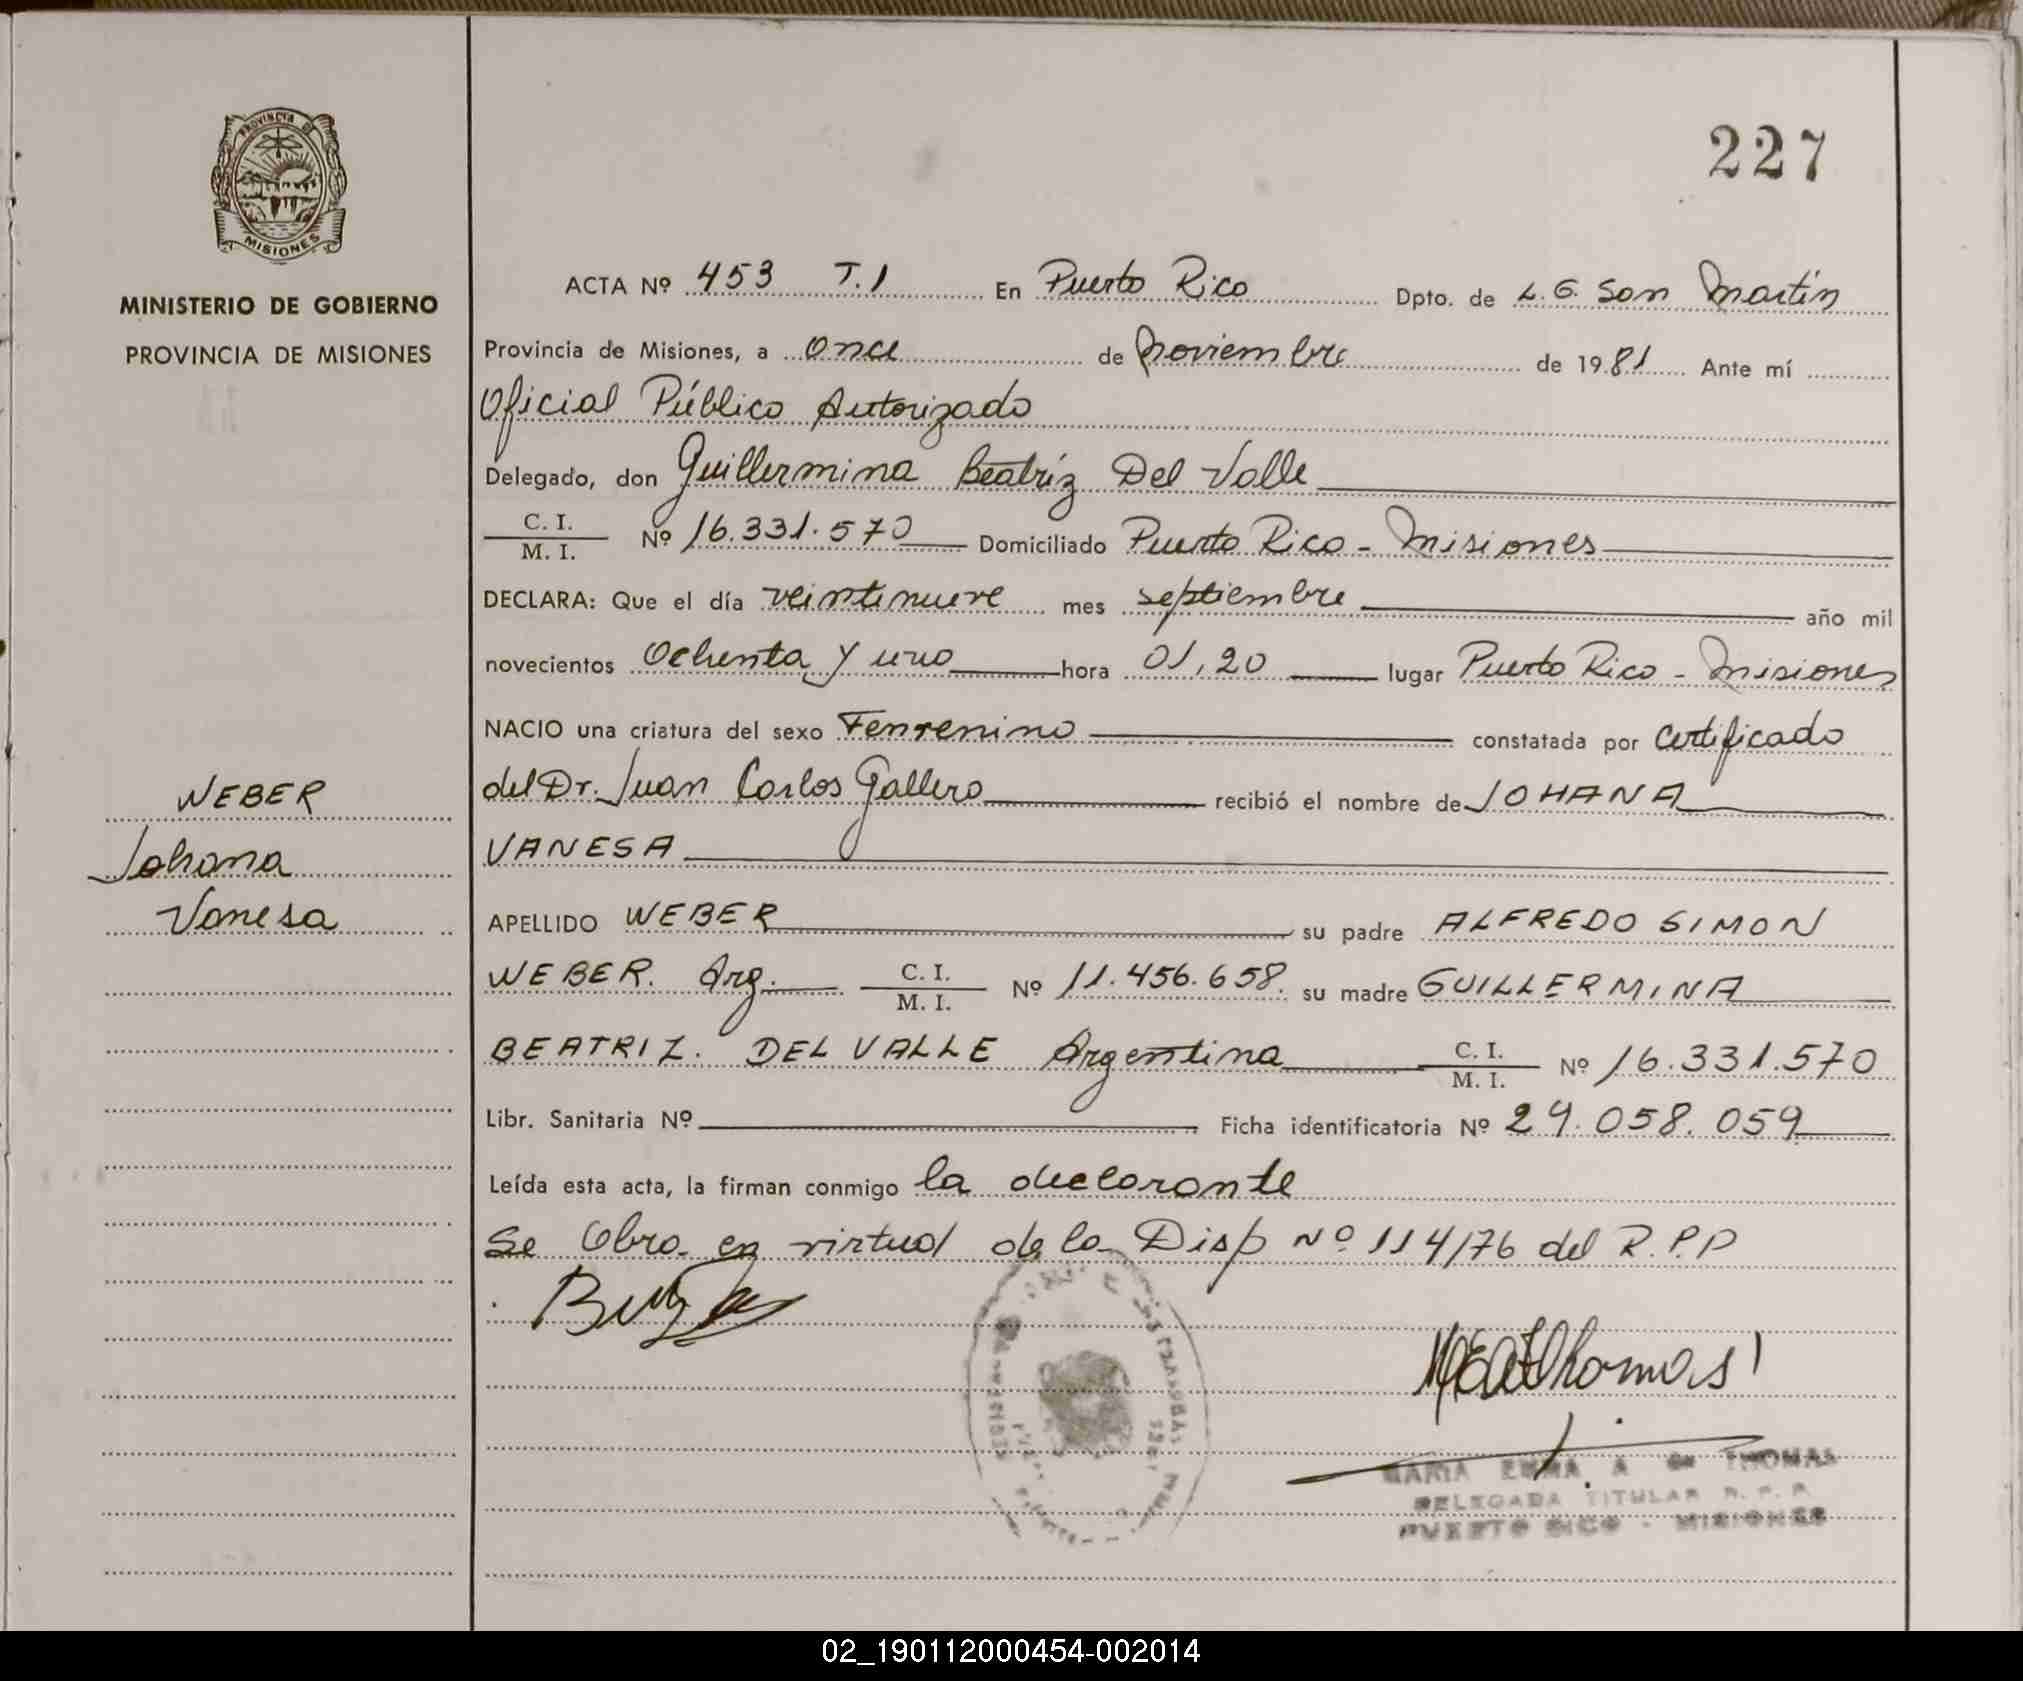 227
PROVINCIA DE
MISIONES
MINISTERIO DE GOBIERNO
PROVINCIA DE MISIONES
WEBER
Johana
Vanesa
ACTA Nº 453 T.1 En Puerto Rico Dpto. de L. G. San Martín
Provincia de Misiones, a once de Noviembre de 1981 Ante mí
Oficial Público Autorizado
Delegado, don Guillermina Beatríz Del Valle
C. I.
M. I. Nº 16.331.570 Domiciliado Puerto Rico - Misiones
DECLARA: Que el día veintinueve mes septiembre año mil
novecientos Ochenta y uno hora 01,20 lugar Puerto Rico - Misiones
NACIO una criatura del sexo Femenino constatada por Certificado
del Dr. Juan Carlos Gallero recibió el nombre de JOHANA
VANESA
APELLIDO WEBER su padre ALFREDO SIMON
WEBER. Arg. C. I. M. I. Nº 11.456.658. su madre GUILLERMINA
BEATRIZ. DEL VALLE Argentina C. I. M. I. Nº 16.331.570
Libr. Sanitaria Nº Ficha identificatoria Nº 29.058.059
Leída esta acta, la firman conmigo la declarante
Se Obra en virtud de la Disp Nº 114/76 del R.P.P
MARIA EMMA A de THOMAS
DELEGADA TITULAR R. P. P.
PUERTO RICO - MISIONES
02_190112000454-002014